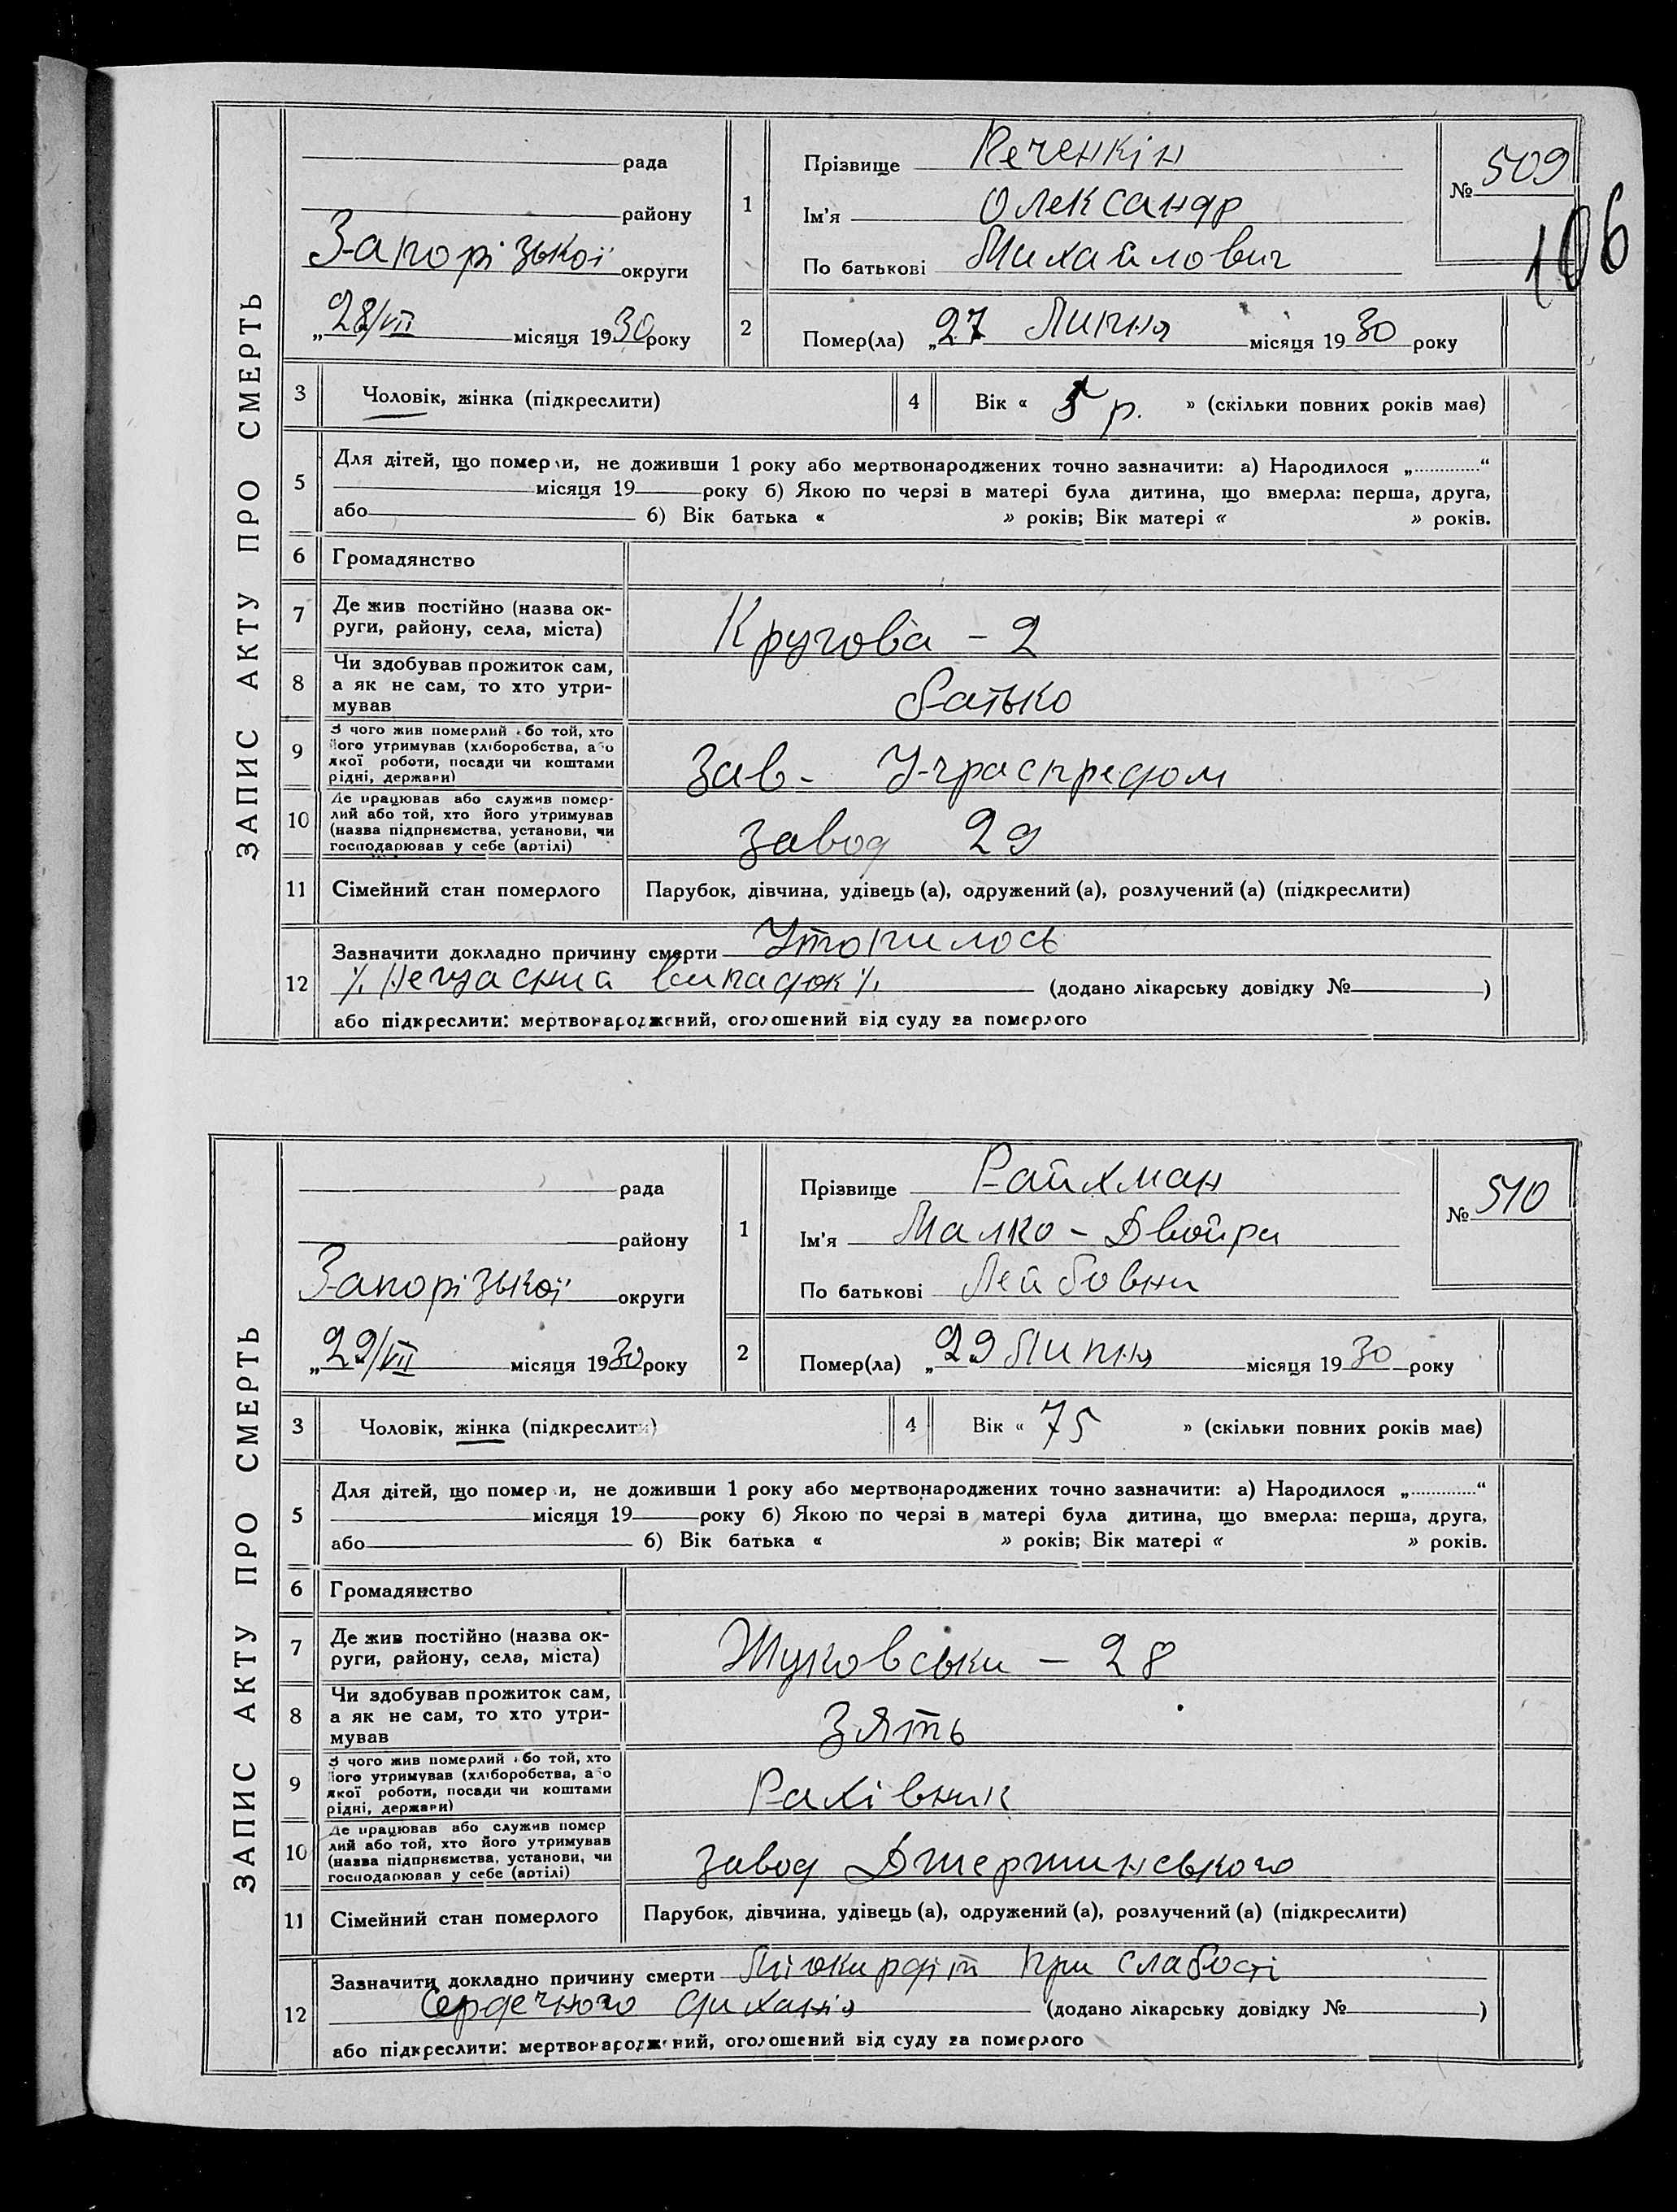 ЗАПИС АКТУ ПРО СМЕРТЬ
рада
району
Запорізької округи
„28/VII місяця 1930 року
1
Прізвище Печенкін
Ім'я Олександр
По батькові Михайлович
№ 509
106
2
Помер(ла) „27 Липня місяця 1930 року
3
Чоловік, жінка (підкреслити)
4
Вік « 5 р. » (скільки повних років має)
5
Для дітей, що померли, не доживши 1 року або мертвонароджених точно зазначити: а) Народилося „............“
місяця 19 року б) Якою по черзі в матері була дитина, що вмерла: перша, друга,
або б) Вік батька « » років; Вік матері « » років.
6
Громадянство
7
Де жив постійно (назва ок-
руги, району, села, міста)
Кругова - 2
8
Чи здобував прожиток сам,
а як не сам, то хто утри-
мував
батько
9
З чого жив померлий або той, хто
його утримував (хліборобства, або
якої роботи, посади чи коштами
рідні, держави)
Зав- Учраспредом
10
Де працював або служив помер-
лий або той, хто його утримував
(назва підприємства, установи, чи
господарював у себе (артілі)
завод 29
11
Сімейний стан померлого
Парубок, дівчина, удівець (а), одружений (а), розлучений (а) (підкреслити)
12
Зазначити докладно причину смерти Утопилось
/. Нещасний випадок /. (додано лікарську довідку № )
або підкреслити: мертвонароджений, оголошений від суду за померлого
ЗАПИС АКТУ ПРО СМЕРТЬ
рада
району
Запорізької округи
„29/VII місяця 1930 року
1
Прізвище Райхман
Ім'я Малко - Двойри
По батькові Лейбовни
№ 510
2
Помер(ла) „29 Липня місяця 1930 року
3
Чоловік, жінка (підкреслити)
4
Вік « 75 » (скільки повних років має)
5
Для дітей, що померли, не доживши 1 року або мертвонароджених точно зазначити: а) Народилося „............“
місяця 19 року б) Якою по черзі в матері була дитина, що вмерла: перша, друга,
або б) Вік батька « » років; Вік матері « » років.
6
Громадянство
7
Де жив постійно (назва ок-
руги, району, села, міста)
Жуковськи - 28
8
Чи здобував прожиток сам,
а як не сам, то хто утри-
мував
Зять
9
З чого жив померлий або той, хто
його утримував (хліборобства, або
якої роботи, посади чи коштами
рідні, держави)
Рахівник
10
Де працював або служив помер
лий або той, хто його утримував
(назва підприємства, установи, чи
господарював у себе (артілі)
завод Джержинського
11
Сімейний стан померлого
Парубок, дівчина, удівець (а), одружений (а), розлучений (а) (підкреслити)
12
Зазначити докладно причину смерти Міокардіт при слабості
Сердечного диханія (додано лікарську довідку № )
або підкреслити: мертвонароджений, оголошений від суду за померлого